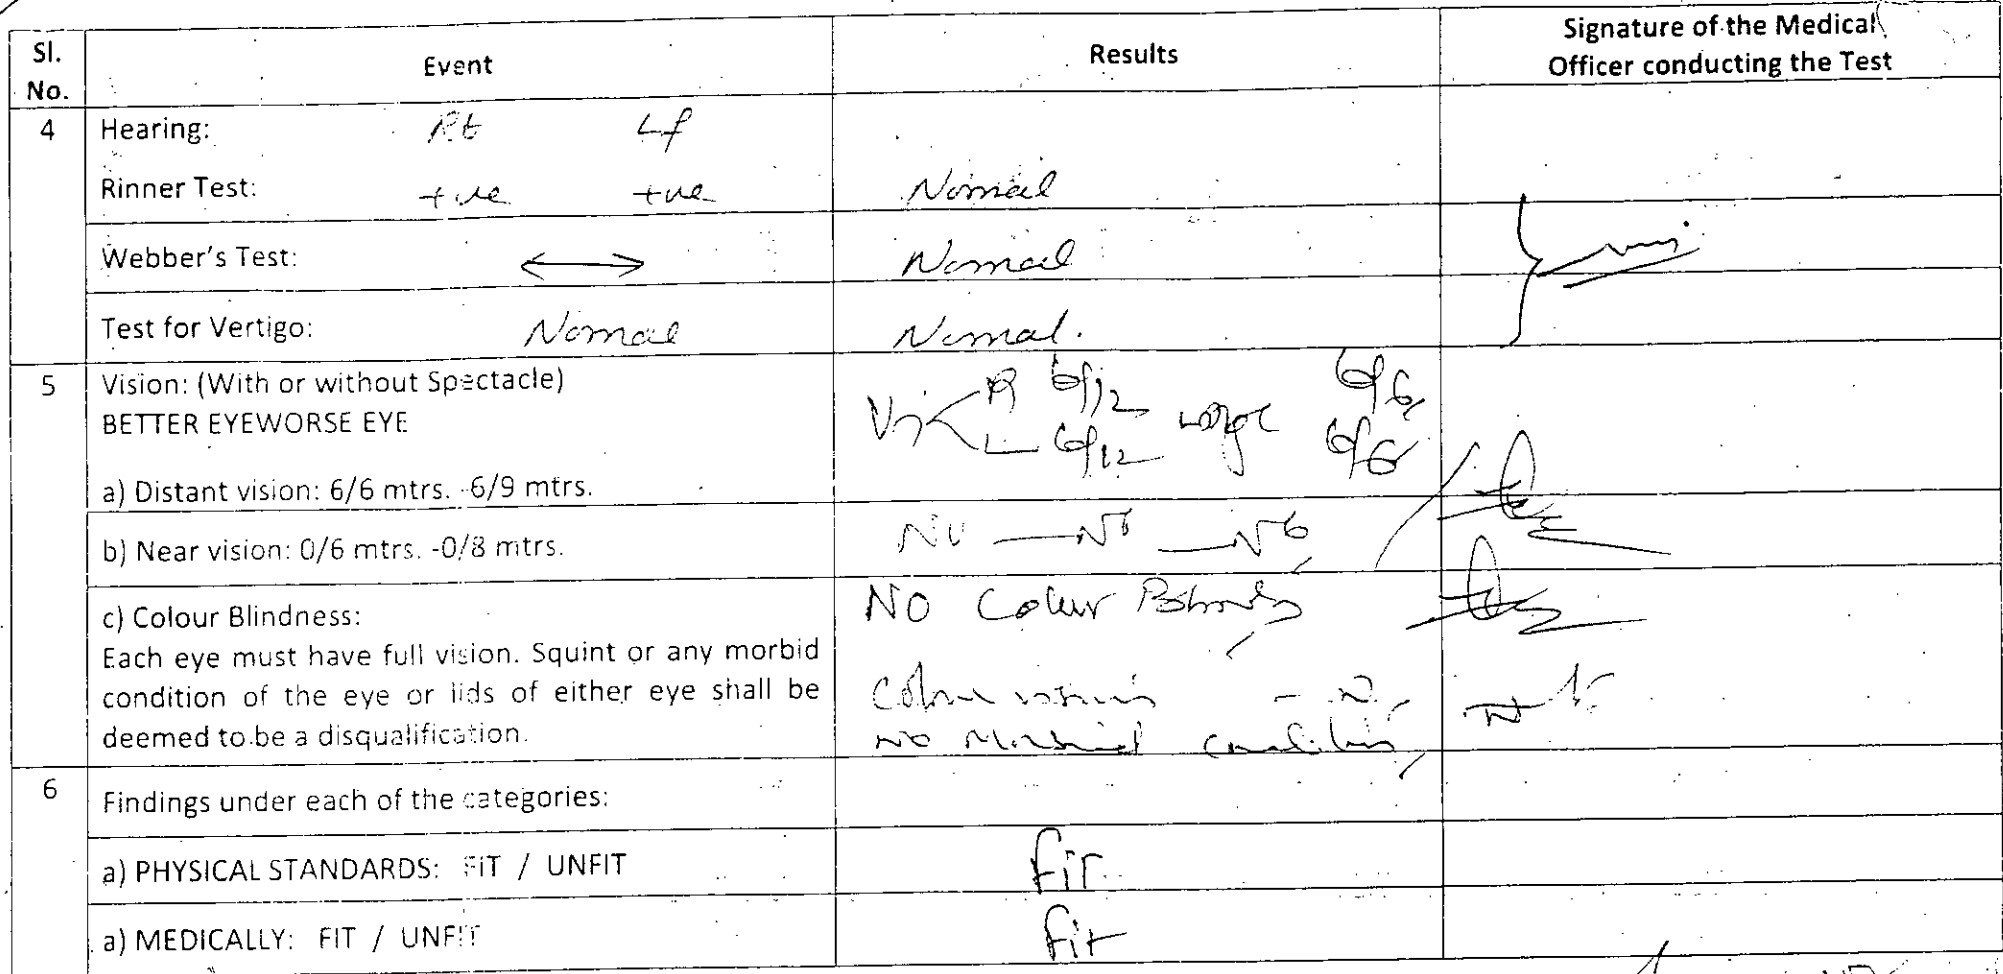 Sl. No. Event Results Signature of the Medical Officer conducting the Test
4 Hearing: Rt Lf
Rinner Test: +ve +ve Normal
Webber's Test: ←→ Normal
Test for Vertigo: Normal Normal.
5 Vision: (With or without Spectacle)
BETTER EYEWORSE EYE
R 6/12 6/6
L 6/12 6/6
a) Distant vision: 6/6 mtrs. -6/9 mtrs.
b) Near vision: 0/6 mtrs. -0/8 mtrs. N6
c) Colour Blindness: NO Colour
Each eye must have full vision. Squint or any morbid
condition of the eye or lids of either eye shall be Colour vision - N
deemed to be a disqualification. No Morbid condition
6 Findings under each of the categories:
a) PHYSICAL STANDARDS: FIT / UNFIT Fit
a) MEDICALLY: FIT / UNFIT Fit